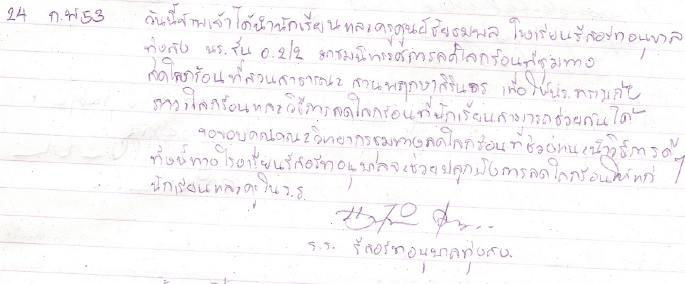 24 ก.พ 53 วันนี้ข้าพเจ้าได้นำนักเรียนและครูศูนย์ โรงเรียนรีสอร์ทอนุบาล
ทุ่งสง นร. ชั้น อ.2/2 มาชมนิทรรศการลดโลกร้อนที่ชุมทาง
ลดโลกร้อนที่สวนสาธารณะ สวนพฤกษาสิรินธร เพื่อให้ นร. ทราบถึง
ภาวะโลกร้อนและวิธีการลดโลกร้อนที่นักเรียนสามารถช่วยกันได้
ขอขอบคุณคณะวิทยากรชุมทางลดโลกร้อนที่ช่วยแนะนำวิธีการดีๆ
ทั้งนี้ทางโรงเรียนรีสอร์ทอนุบาลจะช่วยปลูกฝังการลดโลกร้อนให้แก่
นักเรียนและครูใน ร.ร.
ร.ร. รีสอร์ทอนุบาลทุ่งสง.